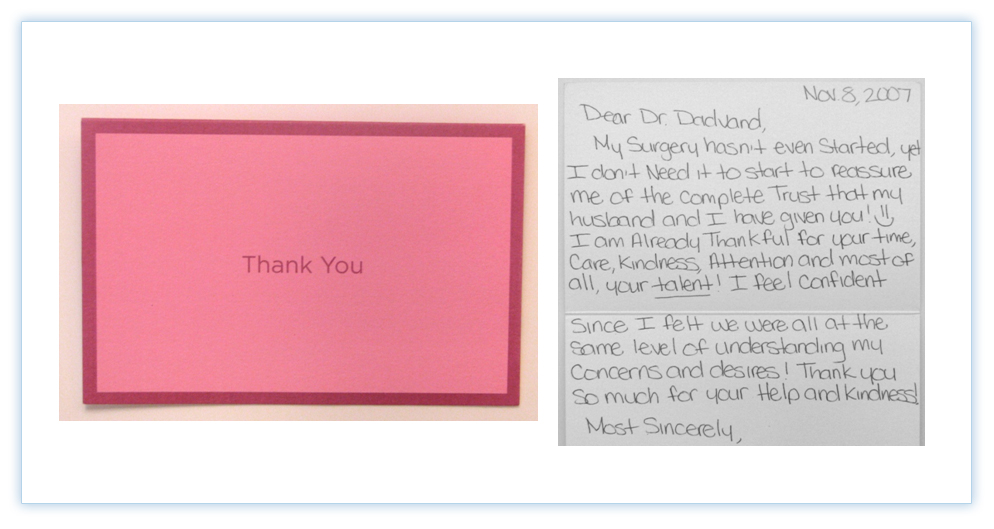 Thank You
Nov. 8, 2007
Dear Dr. Dadvand,
My Surgery hasn't even Started, yet
I don't Need it to start to reassure
me of the complete Trust that my
husband and I have given you!
I am Already Thankful for your time,
Care, Kindness, Attention and most of
all, your talent! I feel Confident
Since I felt we were all at the
same level of understanding my
Concerns and desires! Thank you
So much for your Help and kindness!
Most Sincerely,